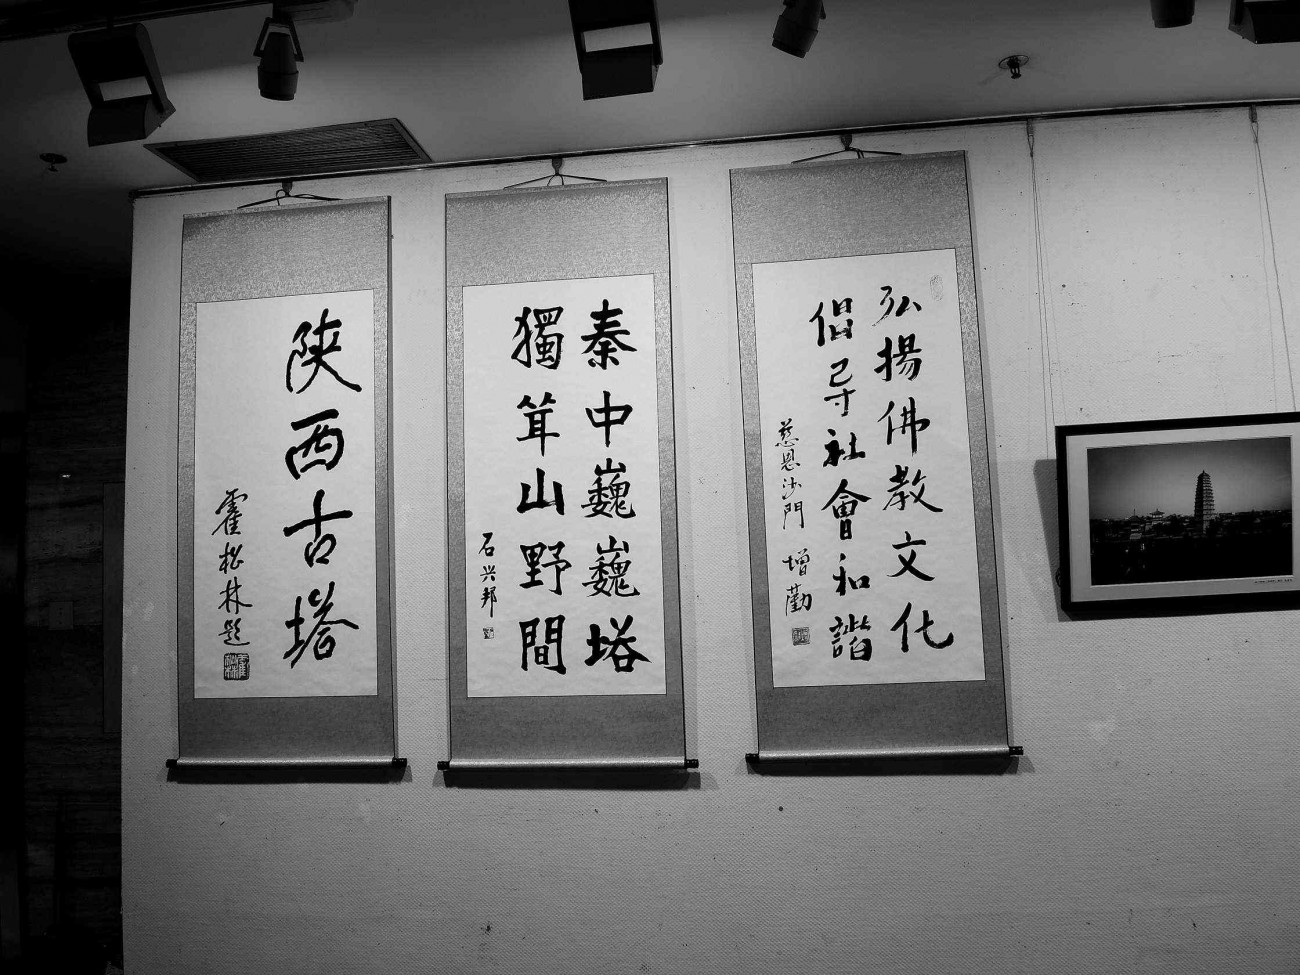 弘揚佛教文化
倡导社會和諧
慈恩沙門 增勤
秦中巍巍塔
獨茸山野間
石兴邦
陕西古塔
霍松林題